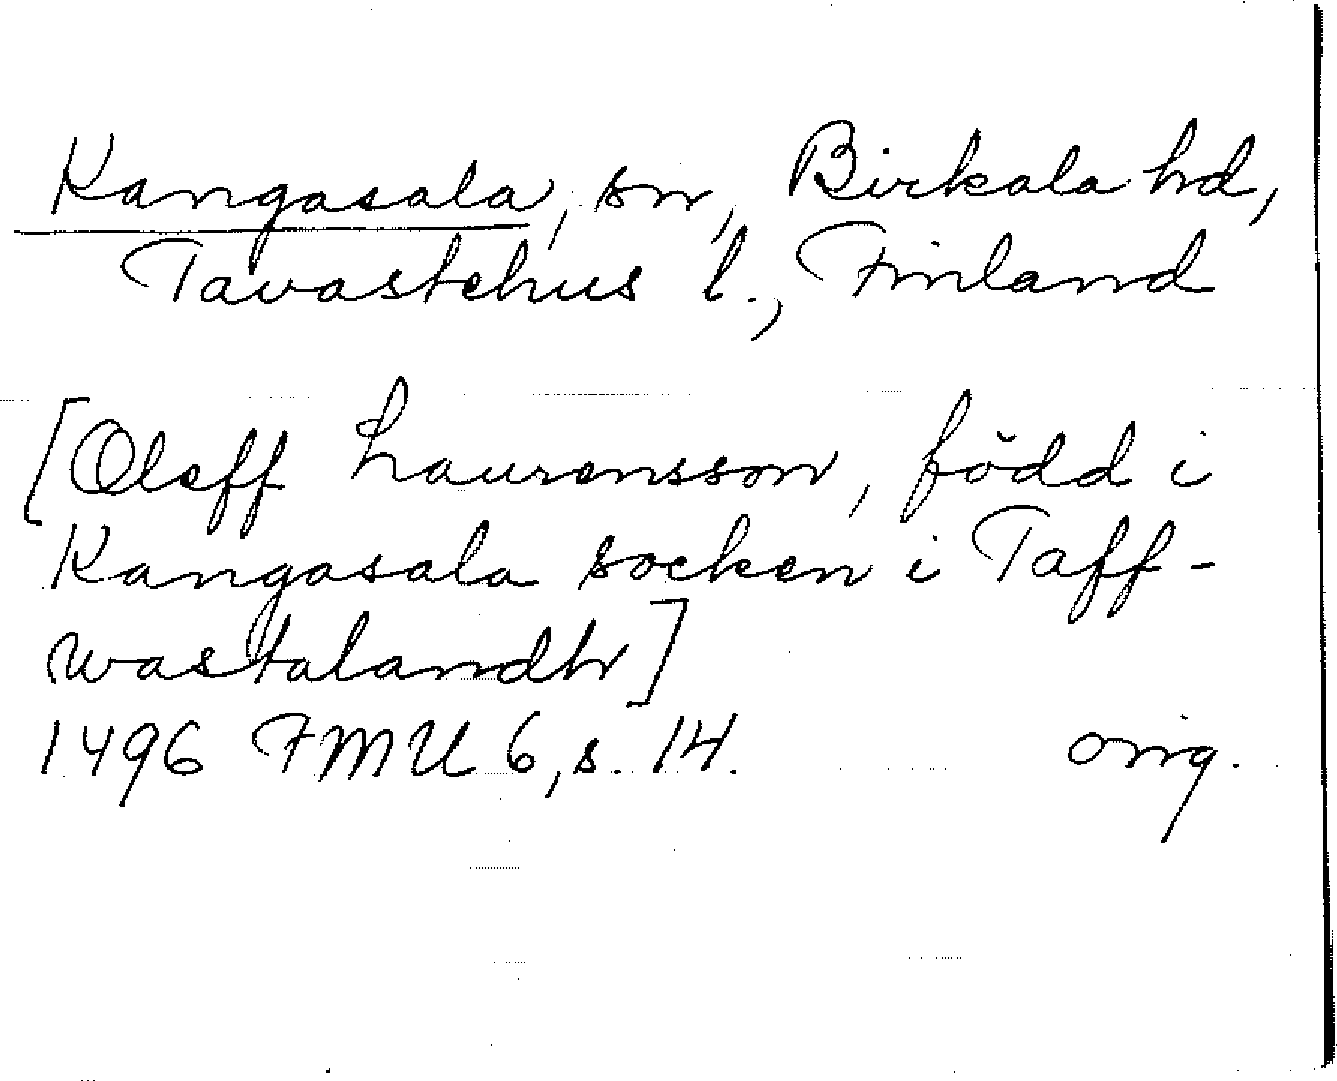 Kangasala, sn, Birkala hd,
Tavastehus l., Finland
[Oleff Laurensson, född i
Kangasala socken i Taff-
wastalandh]
1496 FMU 6, s. 14. orig.